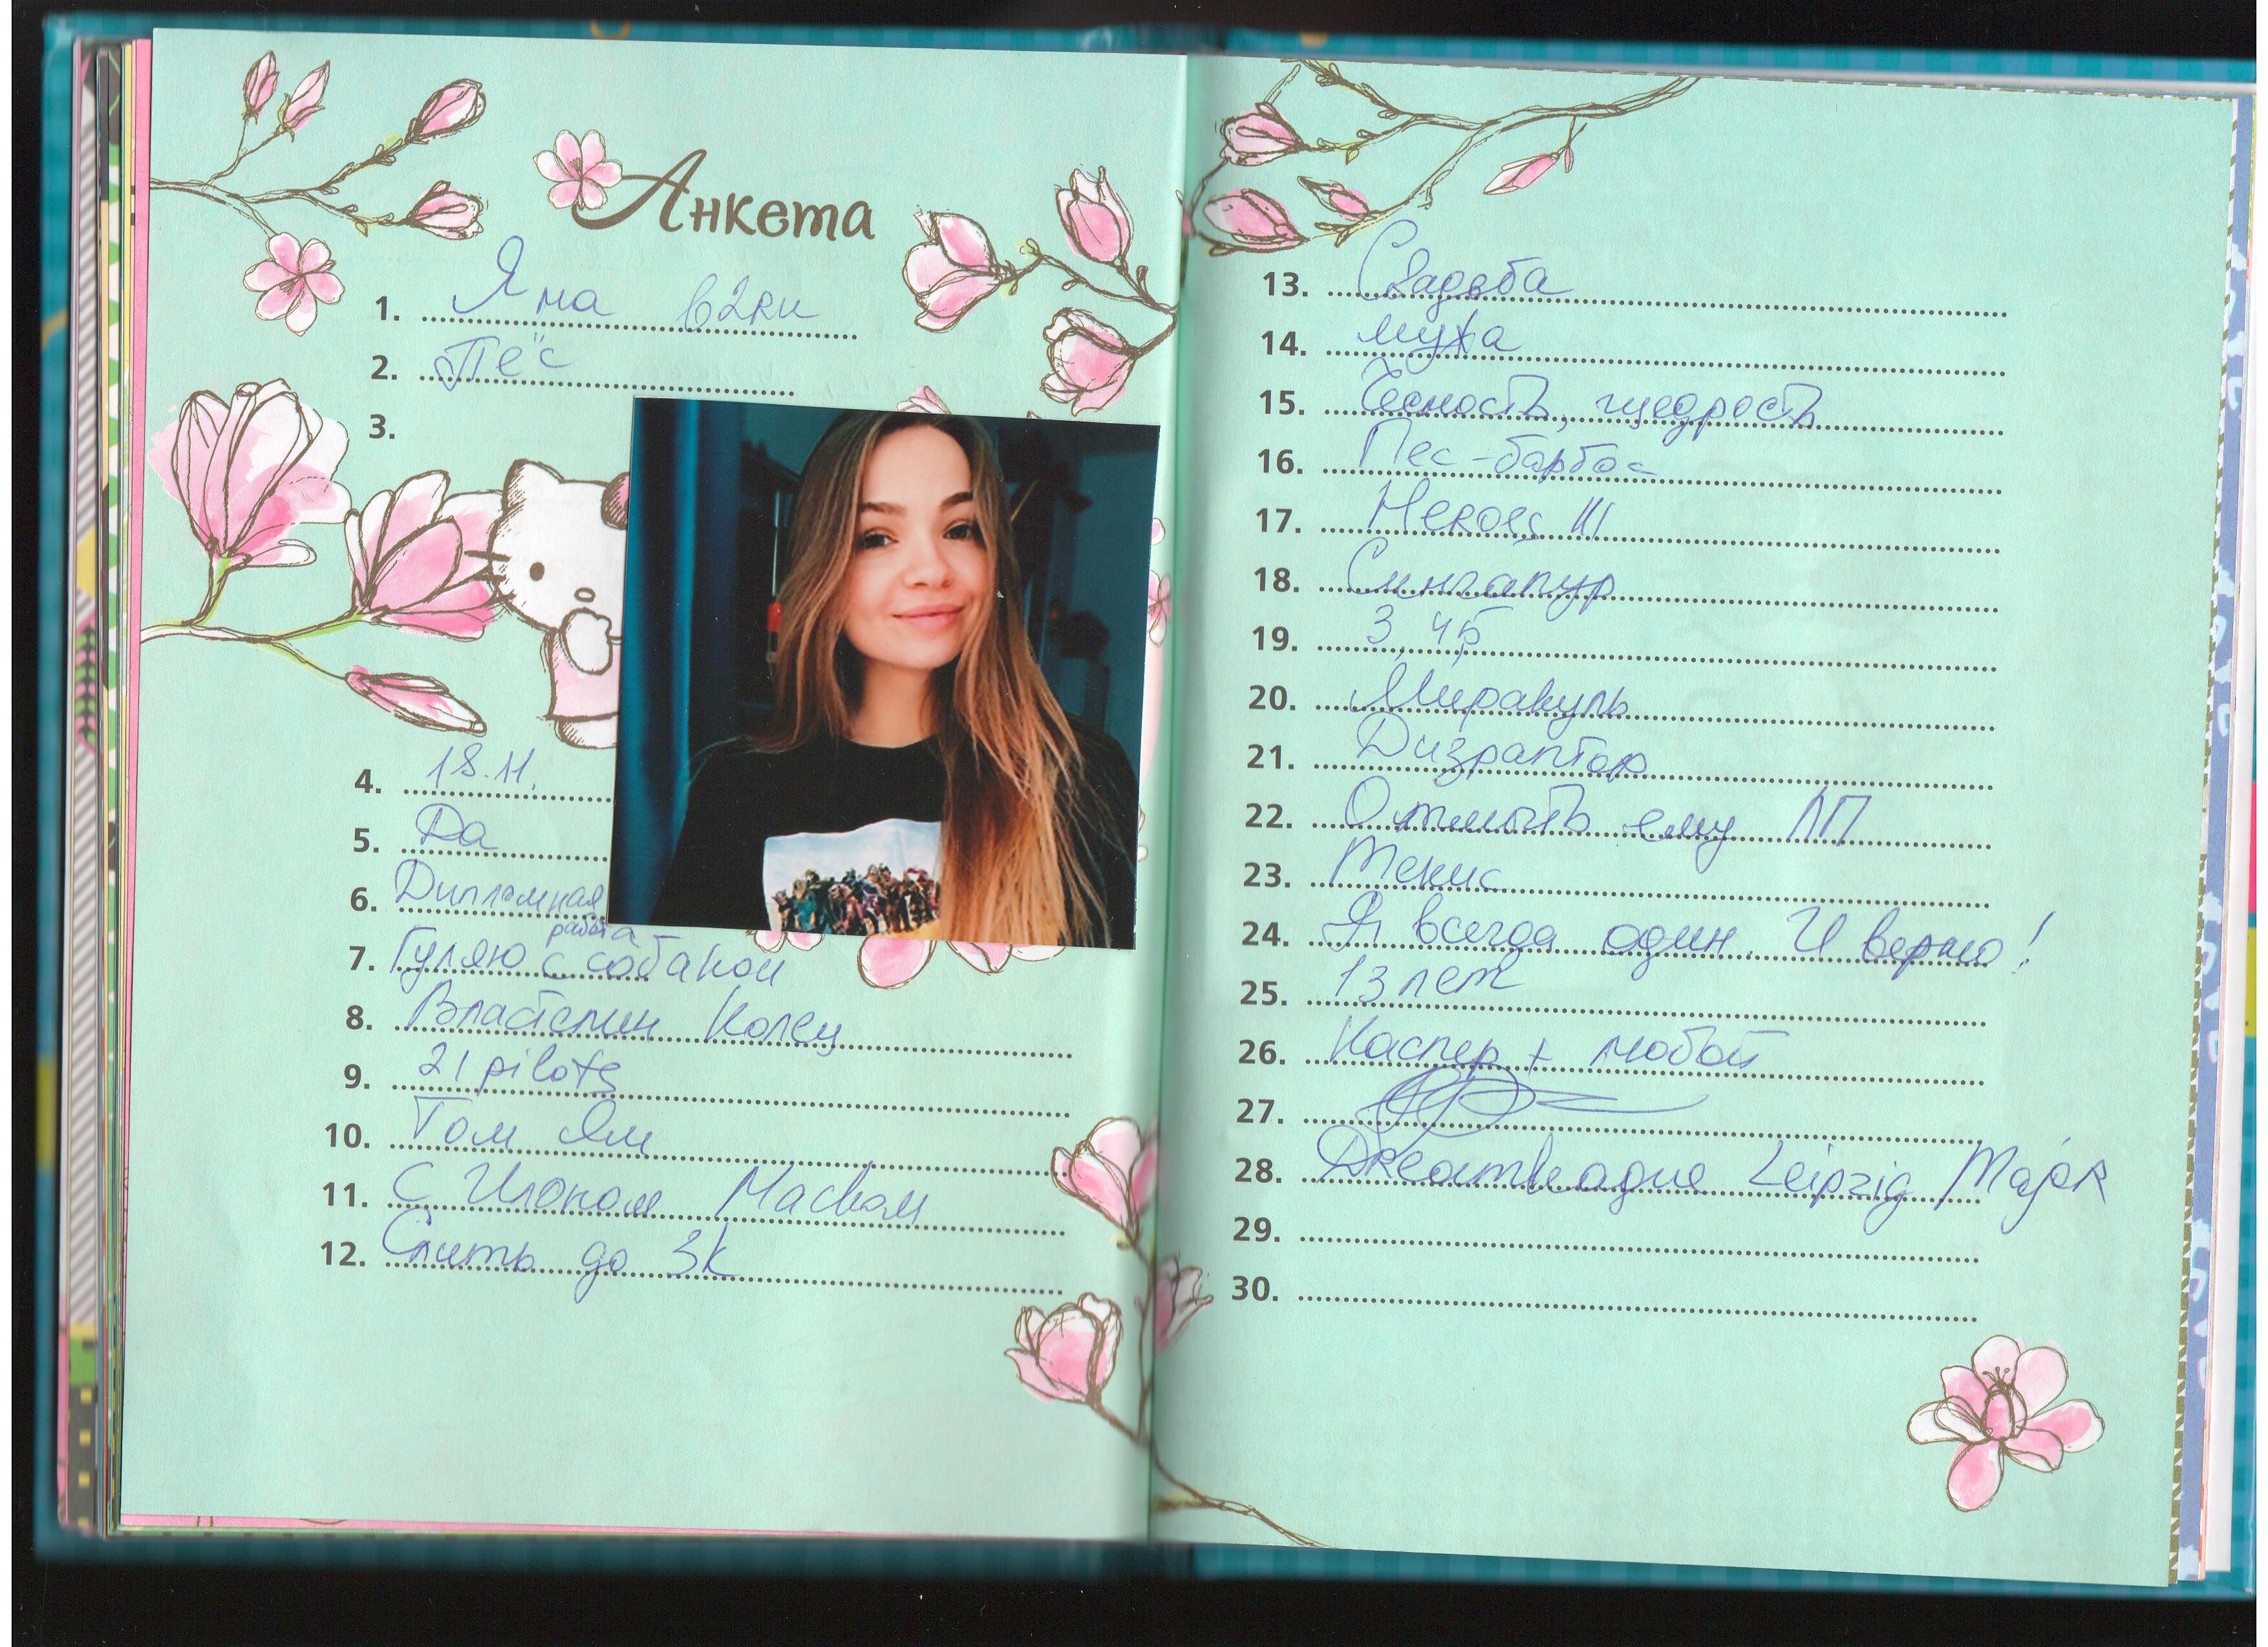 Анкета
1. Яна b2ru
2. Пёс
3.
4. 18.11.
5. Да
6. Дипломная
работа
7. Гуляю с собакой
8. Властелин Колец
9. 21 pilots
10. Том Ям
11. С Илоном Маском
12. Слить до 3k
13. Свадьба
14. мужа
15. Чесность, щедрость
16. Пес-барбос
17. Heroes III
18. Сингапур
19. 3, 4, 5
20. Миракуль
21. Дизраптор
22. Отмыть ему ЛП
23. Тенис
24. Я всегда один. И верно!
25. 13 лет
26. Каспер +
27.
28. Dreamleague Leipzig Major
29.
30.